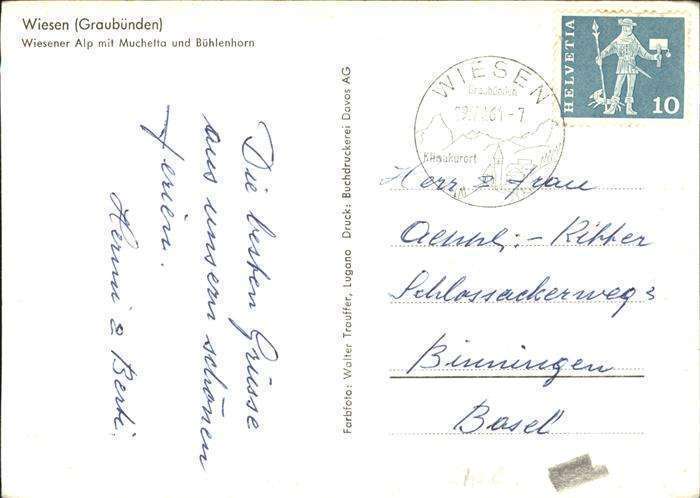 Wiesen (Graubünden)
Wiesener Alp mit Muchetta und Bühlenhorn
Die besten Grüsse
aus unsern schönen
Ferien.
Hermi & Berti.
Farbfoto: Walter Trauffer, Lugano Druck: Buchdruckerei Davos AG
WIESEN
Graubünden
61-7
Klimakurort
HELVETIA
10
Herr & Frau
Ritter
Schlossackerweg 3
Binningen
Basel